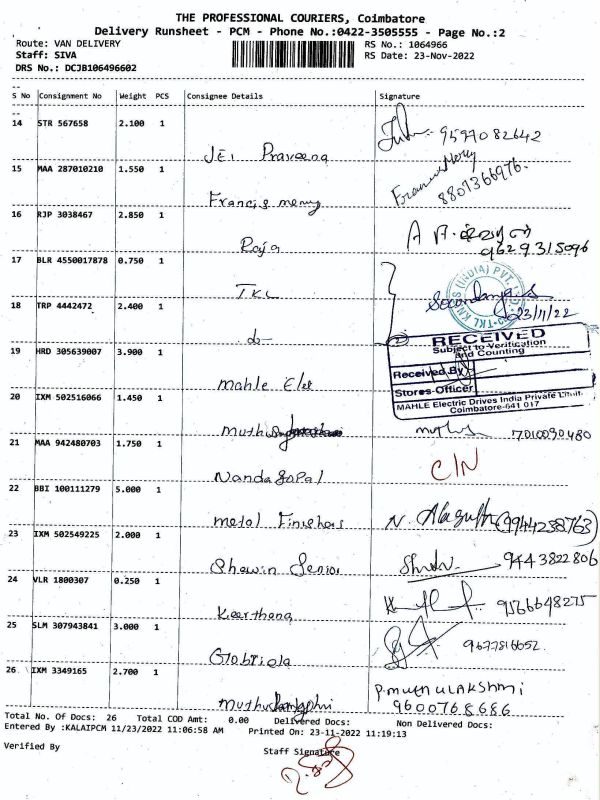 THE PROFESSIONAL COURIERS, Coimbatore
Delivery Runsheet - PCM - Phone No.:0422-3505555 - Page No.:2
Route: VAN DELIVERY RS No.: 1064966
Staff: SIVA RS Date: 23-Nov-2022
DRS No.: DCJB106496602
S No Consignment No Weight PCS Consignee Details Signature
14 STR 567658 2.100 1
JEI Praveena 9597082642
15 MAA 287010210 1.550 1
Francis merry Francis Merry 8801366976.
16 RJP 3038467 2.850 1
Raja 9629315096
17 BLR 4550017878 0.750 1
TKL
(INDIA) PVT.
23/11/22
18 TRP 4442472 2.400 1
do
RECEIVED
Subject to Verification
and Counting
19 HRD 305639007 3.900 1
Received By
Mahle Elet
Stores Officer
20 IXM 502516066 1.450 1
MAHLE Electric Drives India Private Limit
Coimbatore-641 017
Muthu 7010090480
21 MAA 942480703 1.750 1
C/N
Nanda Gopal
22 BBI 100111279 5.000 1
Metal Finishers N. (9944238763)
23 IXM 502549225 2.000 1
Senior 9443822806
24 VLR 1800307 0.250 1
Keerthana 9566648275
25 SLM 307943841 3.000 1
9677816652.
Globriola
26 IXM 3349165 2.700 1
P.MUTHULAKSHMI
9600768686
Total No. Of Docs: 26 Total COD Amt: 0.00 Delivered Docs: Non Delivered Docs:
Entered By :KALAIPCM 11/23/2022 11:06:58 AM Printed On: 23-11-2022 11:19:13
Verified By Staff Signature